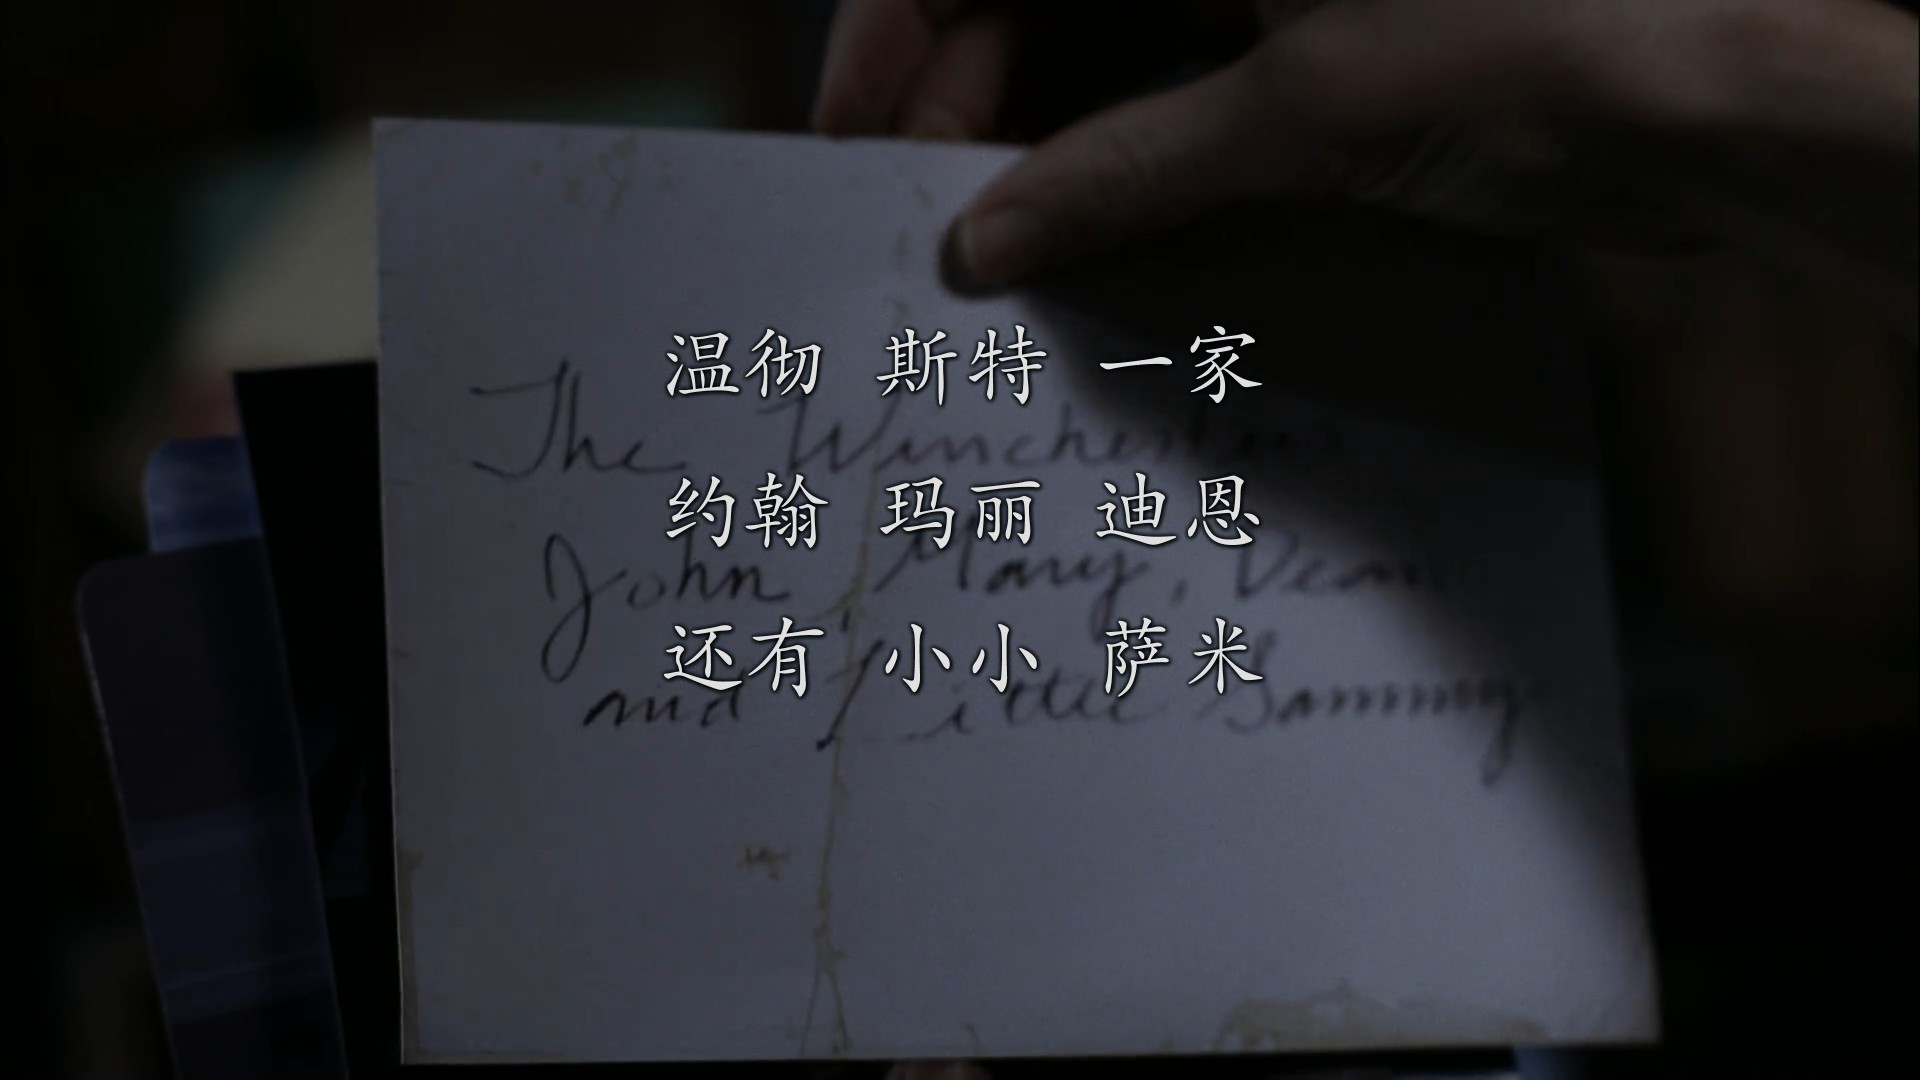 温彻 斯特 一家
The Winchesters
约翰 玛丽 迪恩
John, Mary, Dean
还有 小小 萨米
and Little Sammy